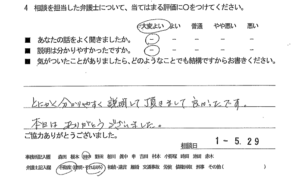 4 相談を担当した弁護士について、当てはまる評価に○をつけてください。
大変よい よい 普通 やや悪い 悪い
■ あなたの話をよく聞きましたか。
■ 説明は分かりやすかったですか。
■ 気がついたことがありましたら、どのようなことでも結構ですからお書きください。
とにかく分かりやすく説明して頂きまして良かったです。
本日はありがとうございました。
ご協力ありがとうございました。
相談日 1-5.29
事務局記入欄
弁護士記入欄